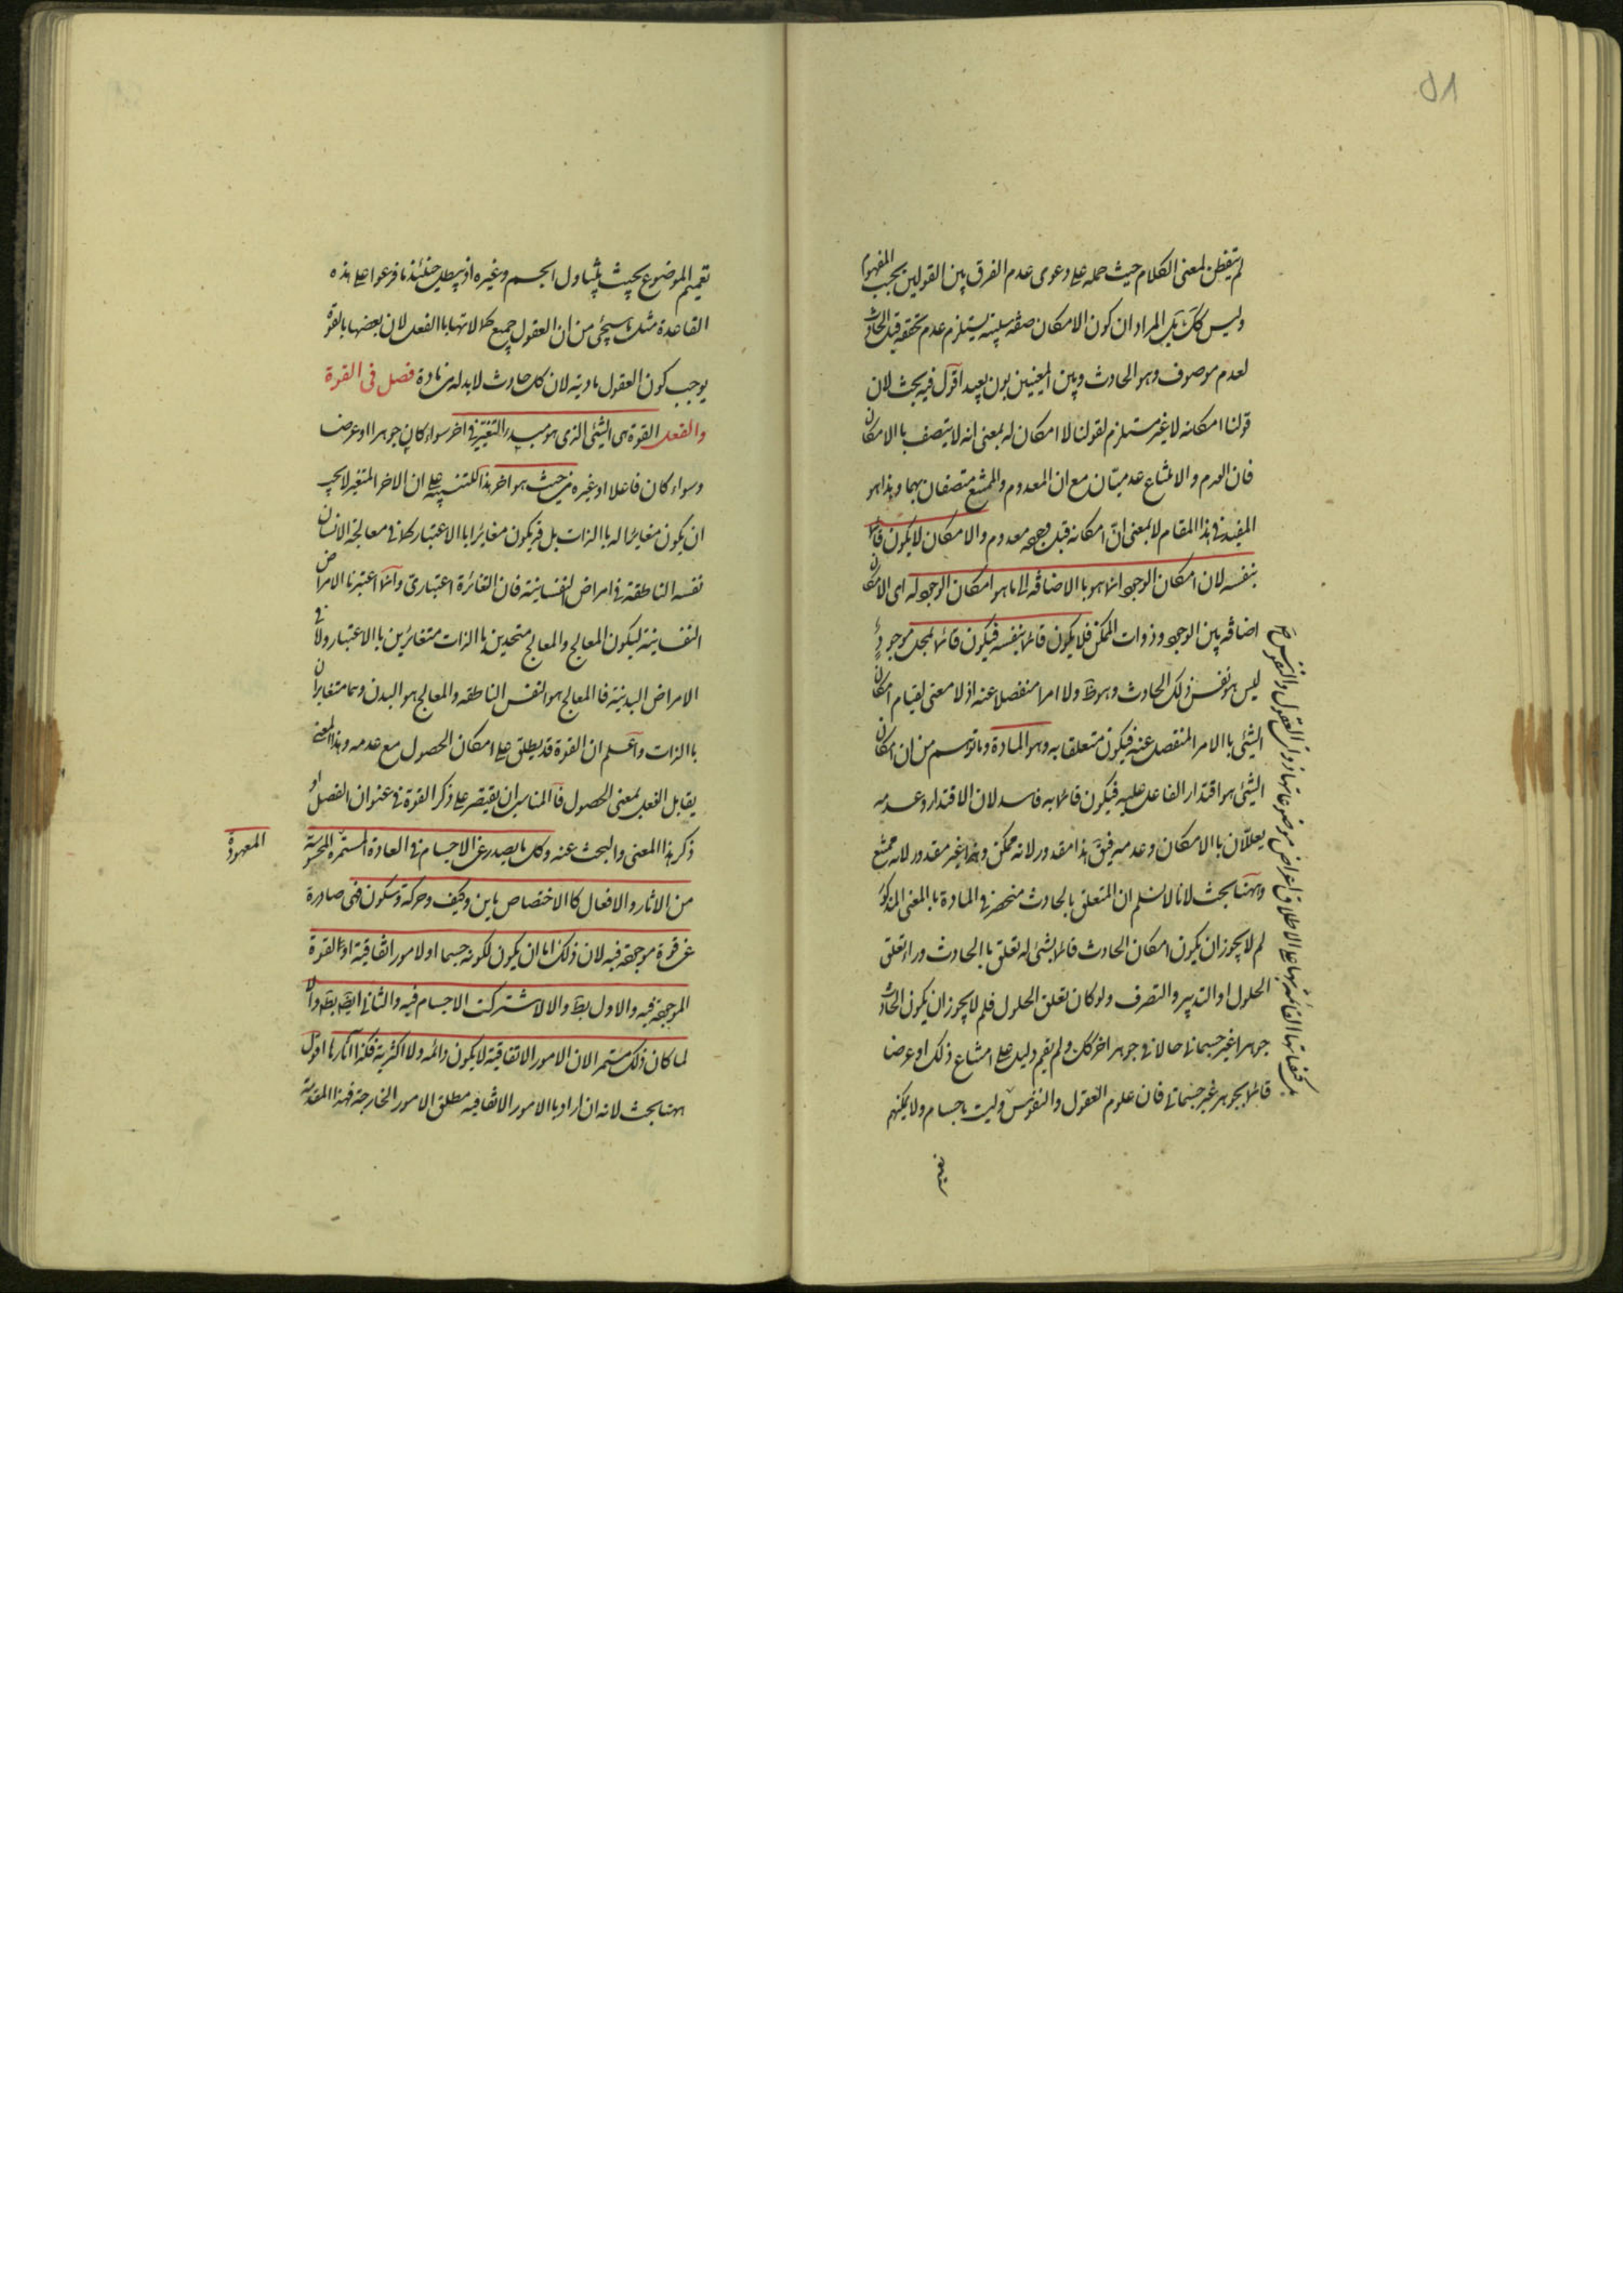 ٥١
لم يتفطن لمعنى الكلام حيث حمله على دعوى عدم الفرق بين القولين بحسب المفهوم
وليس كك بل المراد ان كون الامكان صفة سلبية يستلزم عدم تحققه قبل الحادث
لعدم موصوفه وهو الحادث وبين المعنيين بون بعيد اقول فيه بحث لان
قولنا امكانه لا غير مستلزم لقولنا لا امكان له بمعنى انه لا يتصف بالامكان
فان العدم والامتناع عدميتان مع ان المعدوم والممتنع متصفان بهما وهذا هو
المفيد فى هذا المقام لا بمعنى ان امكانه قبل وجوده معدوم والامكان لا يكون قائما
بنفسه لان امكان الوجود انما هو باالاضافة الى ما هو امكان الوجود له اى الامكان
اضافة بين الوجود وذوات الممكن فلا يكون قائما بنفسه فيكون قائما لمحل موجود
ليس هو نفس ذلك الحادث وهو ظ ولا امرا منفصلا عنه اذ لا معنى لقيام امكان
الشئ باالامر المنفصل عنه فيكون متعلقا به وهو المادة وما توهم من ان امكان
الشئ هو اقتدار الفاعل عليه فيكون قائما به فاسد لان الاقتدار وعدمه
يعللان باالامكان وعدمه فيق هذا مقدور لانه ممكن وهذا غير مقدور لانه ممتنع
وههنا بحث لانا لا نسلم ان المتعلق بالحادث منحصر فى المادة بالمعنى المذكور
لم لا يجوز ان يكون امكان الحادث قائما بشئ له تعلق باالحادث وراء تعلق
الحلول او التدبير والتصرف ولو كان تعلق الحلول فلم لا يجوز ان يكون الحادث
جوهرا غير جسمانى حالا فى جوهر اخر كك ولم يقم دليل على امتناع ذلك او عرضا
قائما بجوهر غير جسمانى فان علوم العقول والنفوس وليت باجسام ولا يمكنهم
تعميم
تعميم الموضوع بحيث يتناول الجسم وغيره اذ يبطل حينئذ ما فرعوا على هذه
القاعدة مثل ما سيجئ من ان العقول جميع كمالاتها باالفعل لان بعضها بالقوة
يوجب كون العقول مادية لان كل حادث لابد له من مادة فصل فى القوة
والفعل القوة هى الشئ الذى هو مبدء التغير فى اخر سواء كان جوهرا او عرضا
وسواء كان فاعلا او غيره من حيث هو اخر هذا للتنبيه على ان الاخر المتغير لا يجب
ان يكون مغائرا له باالذات بل قد يكون مغائرا باالاعتبار كما فى معالجة الانسان
نفسه الناطقة فى امراض النفسانية فان التغائر ة اعتبارى وانما اعتبرنا الامراض
النفسانية ليكون المعالج والمعالج متحدين باالذات متغائرين باالاعتبار ولا فى
الامراض البدنية فاالمعالج هو النفس الناطقة والمعالج هو البدن وهما متغايران
باالذات واعلم ان القوة قد يطلق على امكان الحصول مع عدمه وهذا المعنى
يقابل الفعل بمعنى الحصول فاالمناسب ان يقتصر على ذكر القوة فى عنوان الفصل او
ذكر هذا المعنى والبحث عنه وكل ما يصدر عن الاجسام فى العادة المستمرة المحسوسة
المعهودة
من الاثار والافعال كاالاختصاص باين وكيف وحركة وسكون فهى صادرة
عن قوة موجودة فيه لان ذلك اما ان يكون لكونه جسما او لامور اتفاقية او لقوة
الموجودة فيه والاول بط والا لاشتركت الاجسام فيه والثانى ايضا بط والا
لما كان ذلك مستمرا لان الامور الاتفاقية لا يكون دائمة ولا اكثرية فكذا اثارها اقول
ههنا بحث لانه ان اراد باالامور الاتفاقية مطلق الامور الخارجة فهذا المقدمة